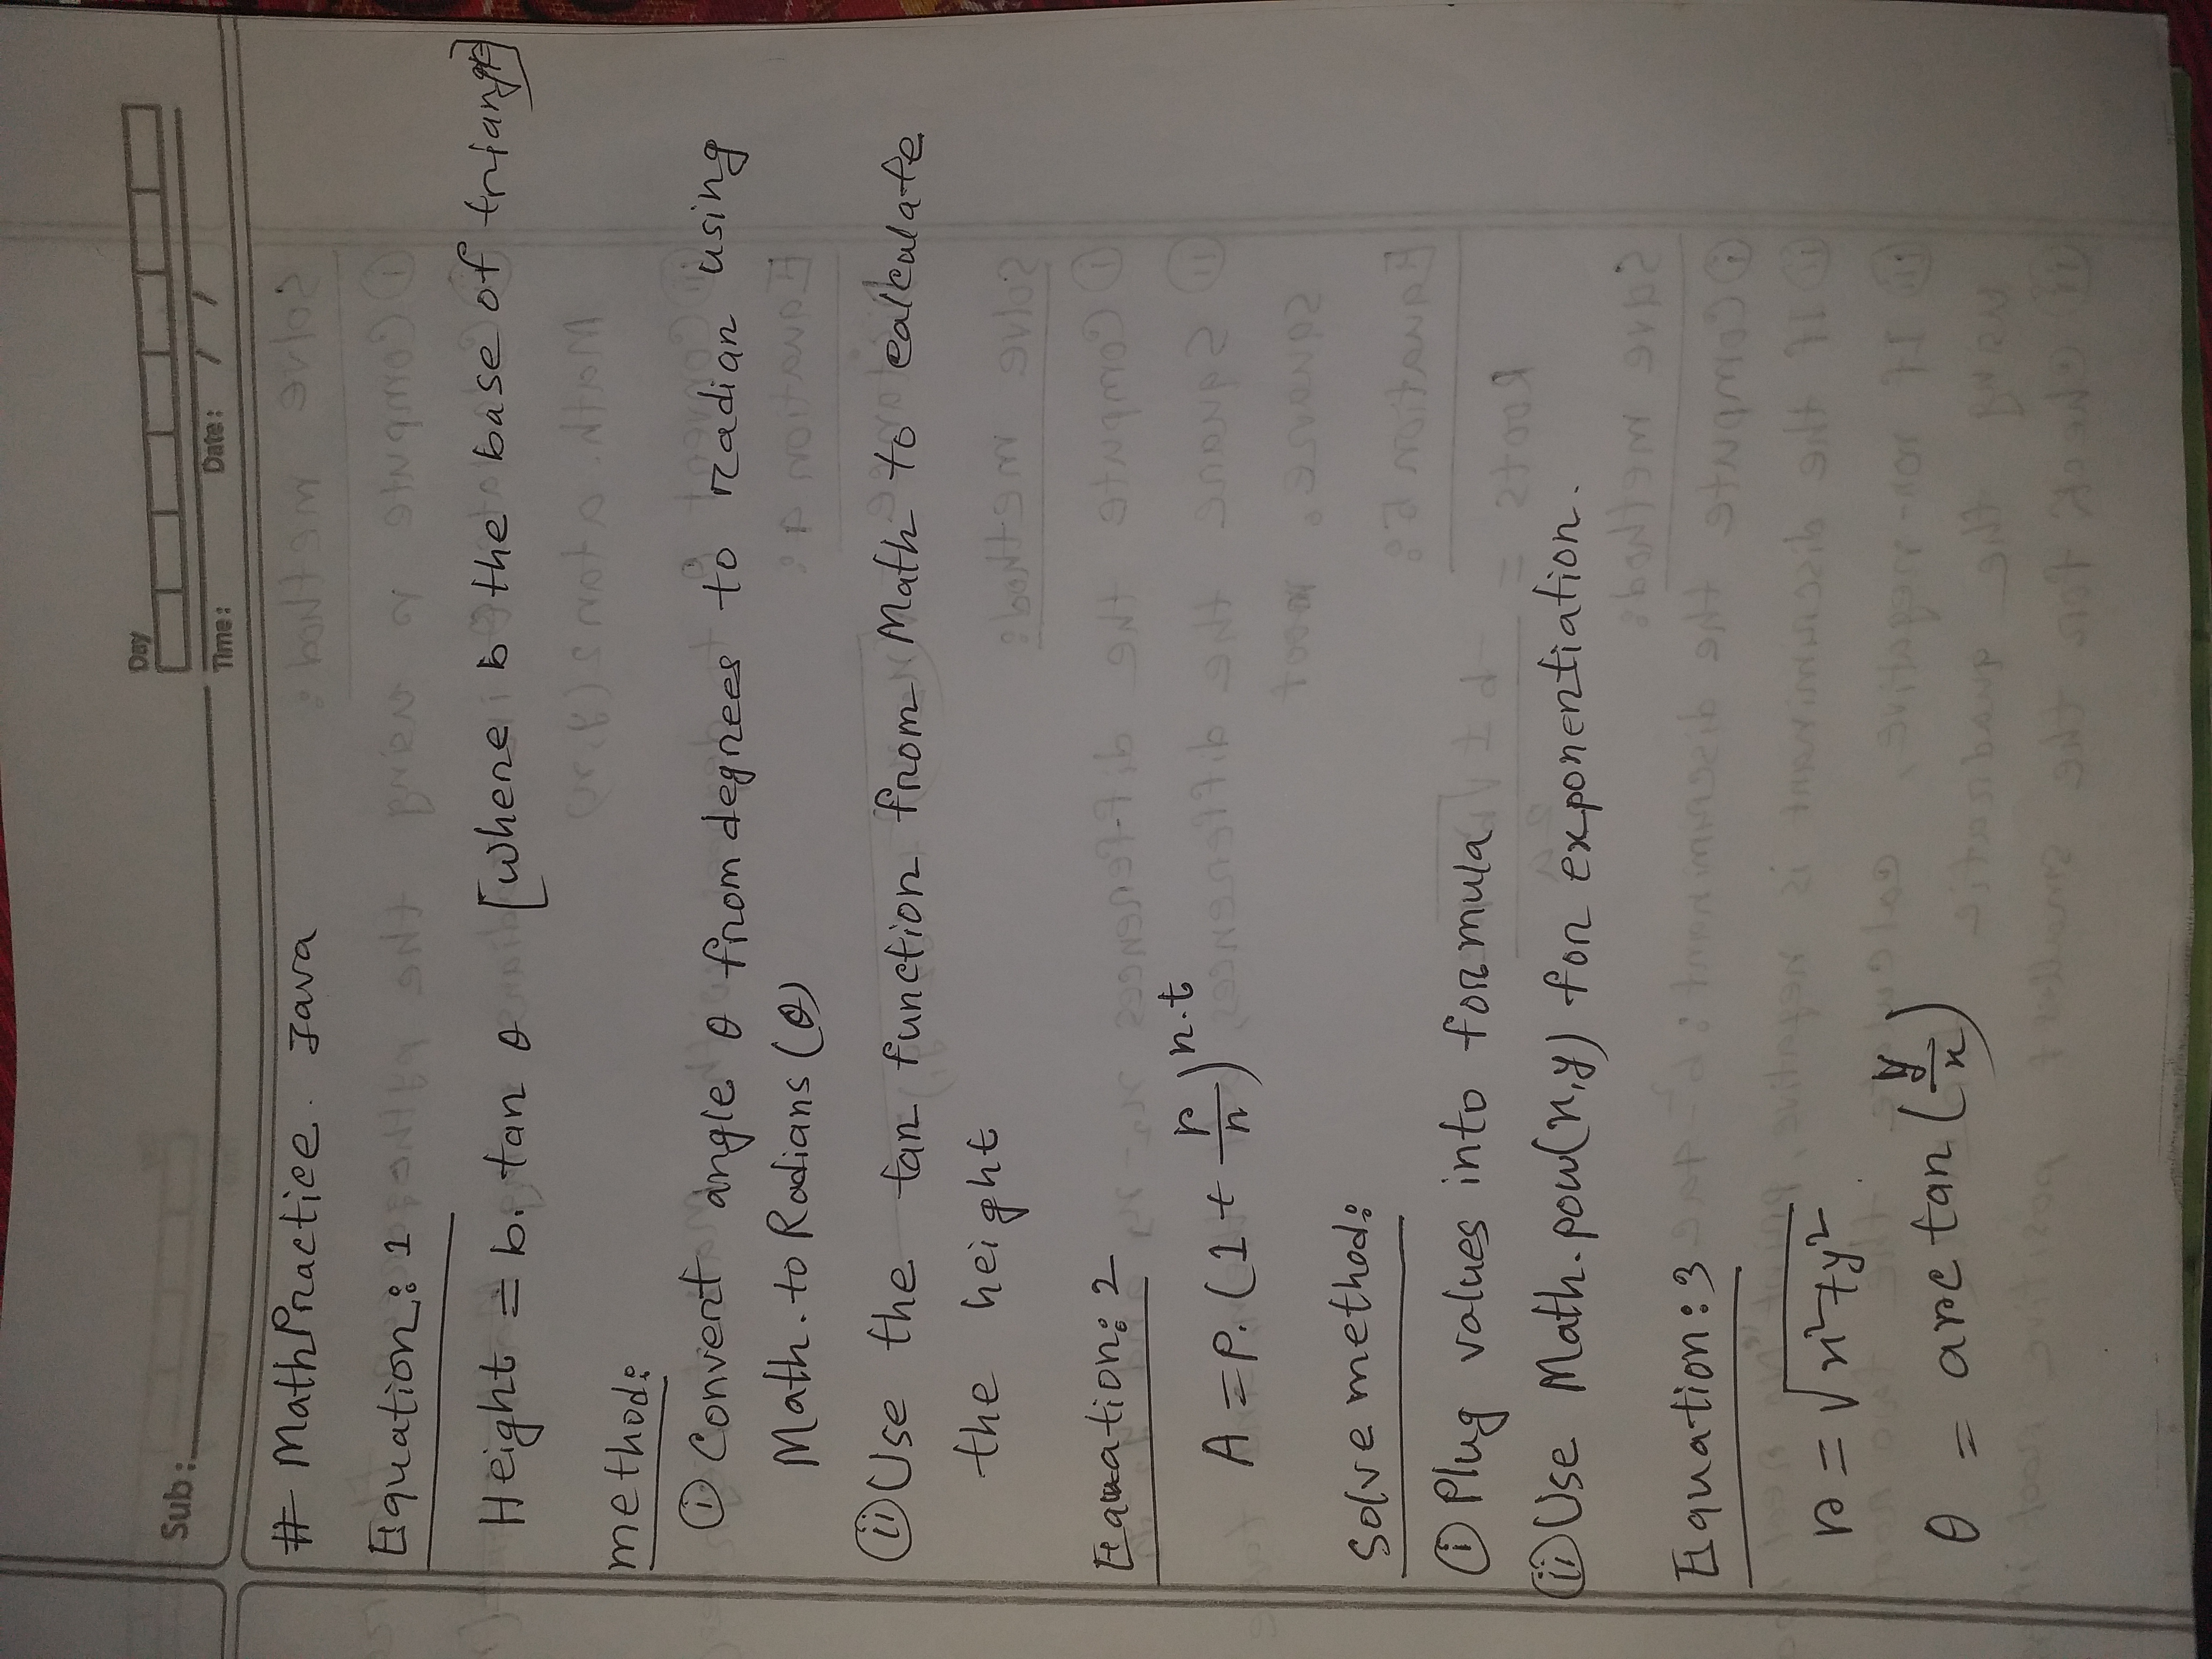 Day
Sub:
Time: Date: / /
# MathPractice. Java
Equation: 1
Height = b. tan θ [where b the base of triangle]
method:
(i) Convert angle θ from degrees to radian using
Math. to Radians (θ)
(ii) Use the tan function from Math to calculate
the height
Equation: 2
A = P. (1 + r/n)^n.t
Solve method:
(i) Plug values into formula
(ii) Use Math. pow(x,y) for exponentiation.
Equation: 3
r = √x²+y²
θ = arc tan (y/x)